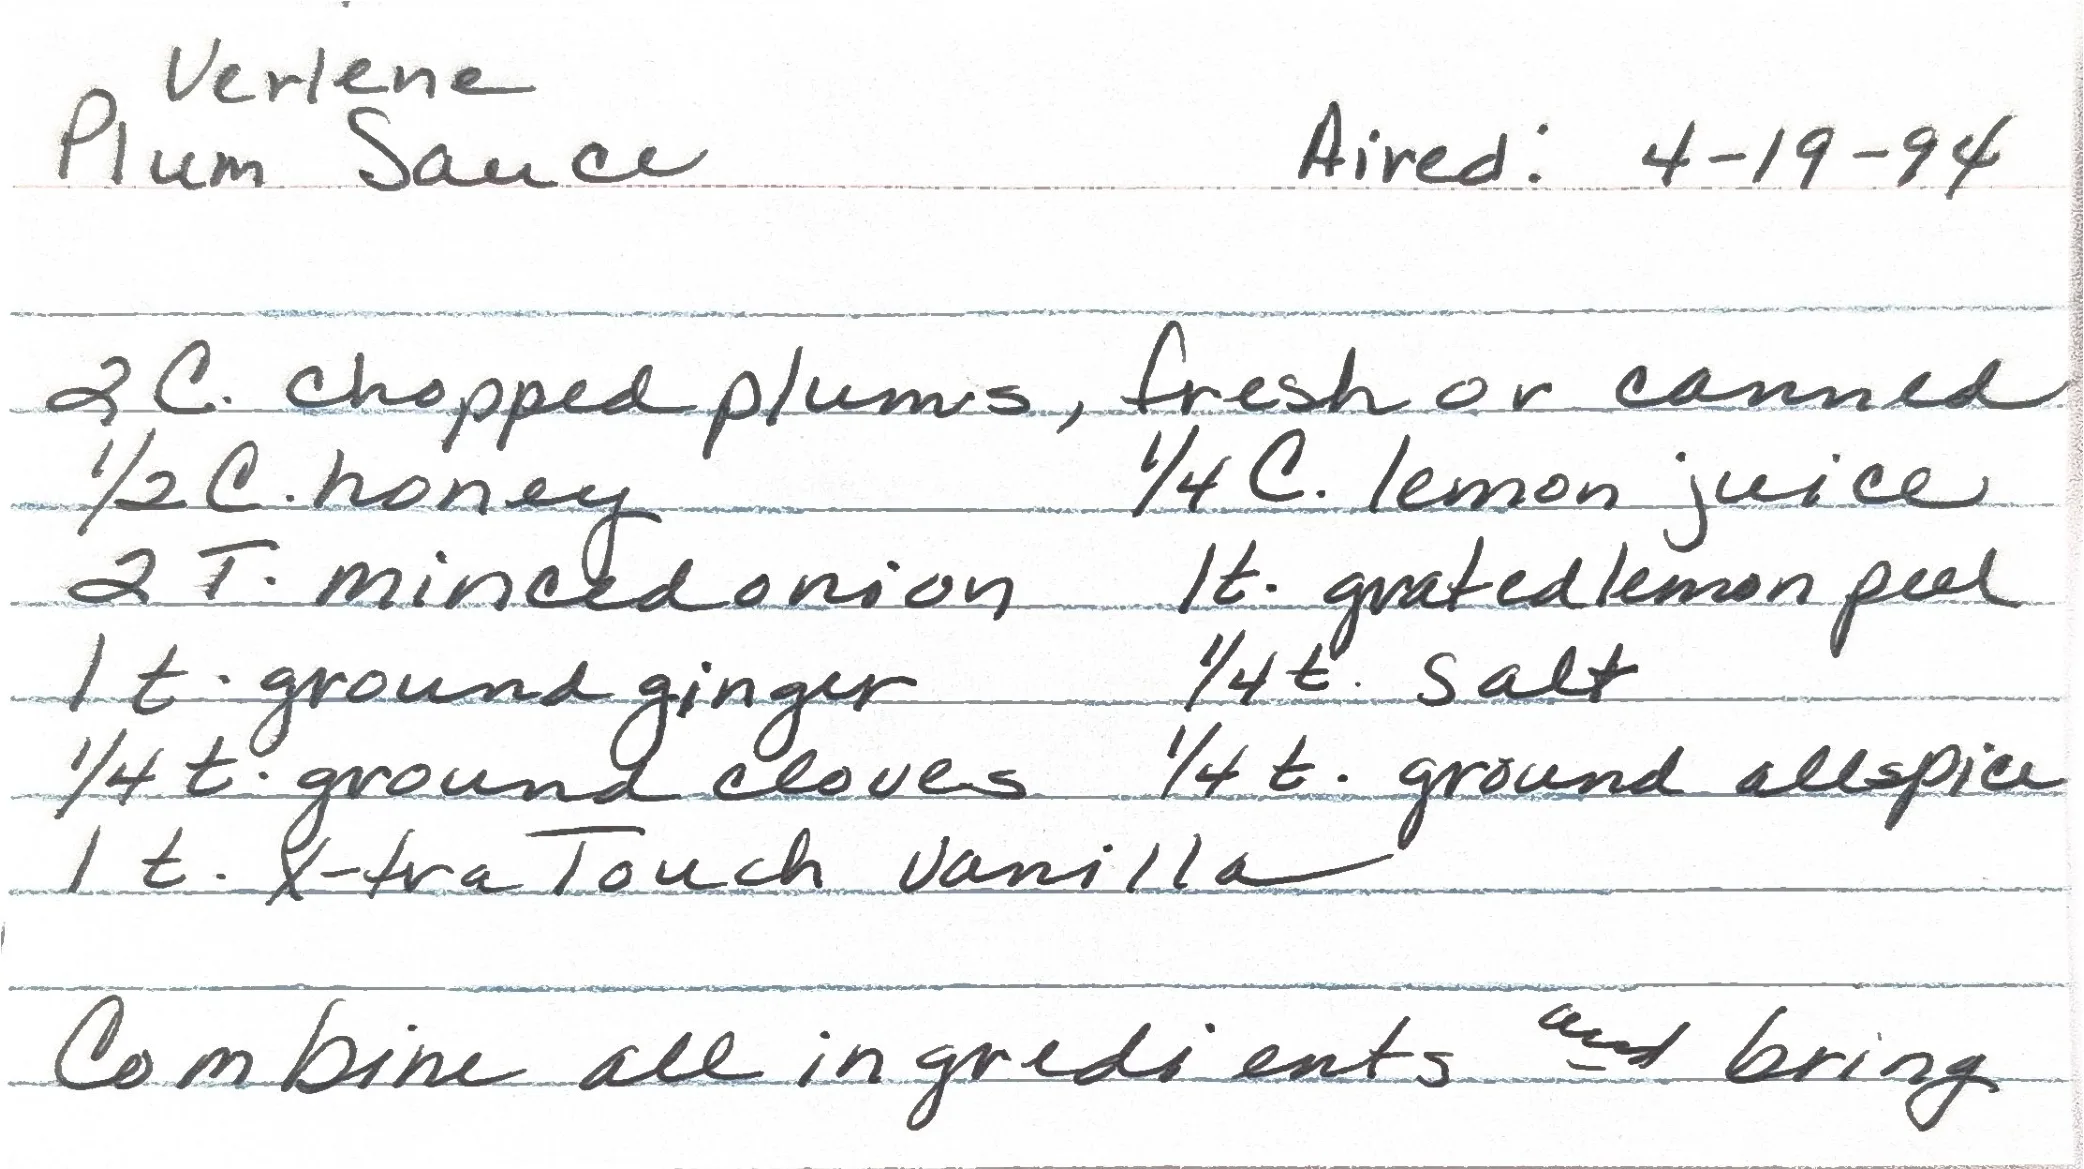 Verlene
Plum Sauce Aired: 4-19-94
2 C. chopped plums, fresh or canned
1/2 C. honey 1/4 C. lemon juice
2 T. minced onion 1t. grated lemon peel
1 t. ground ginger 1/4 t. salt
1/4 t. ground cloves 1/4 t. ground allspice
1 t. X-tra Touch vanilla
Combine all ingredients and bring